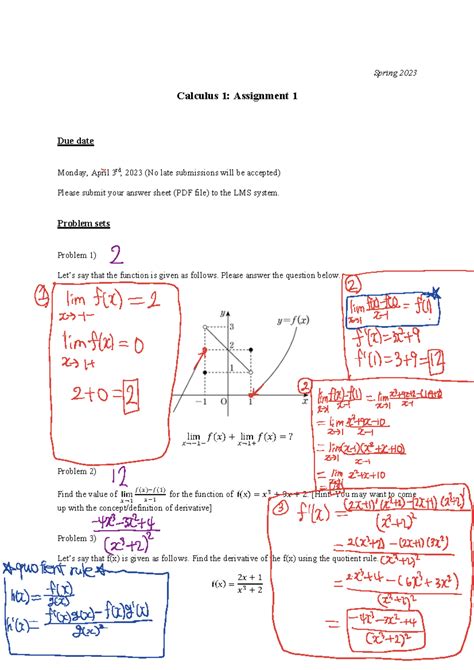 Spring 2023
Calculus 1: Assignment 1
Due date
Monday, April 3rd, 2023 (No late submissions will be accepted)
Please submit your answer sheet (PDF file) to the LMS system.
Problem sets
Problem 1) 2
Let's say that the function is given as follows. Please answer the question below.
①
lim f(x) = 2
x→1−
lim f(x) = 0
x→1+
2+0=2
y
y=f(x)
3
2
1
−1 0 1 x
lim f(x) + lim f(x) = ?
x→−1− x→1+
②
lim f(x)-f(1) / x-1 = f'(1)
x→1
f'(x)=3x²+9
f'(1)=3+9=12
②
lim f(x)-f(1) / x-1 = lim
x→1
= lim x³+9x-10 / x-1
x→1
= lim (x-1)(x²+x+10) / x-1
x→1
= lim x²+x+10
x→1
Problem 2) 12
Find the value of lim f(x)−f(1) / x−1 for the function of f(x) = x³ + 9x + 2. [Hint: You may want to come
x→1
up with the concept/definition of derivative]
-4x³-3x²+4 / (x³+2)²
Problem 3)
Let's say that f(x) is given as follows. Find the derivative of the f(x) using the quotient rule.
f(x) = 2x + 1 / x³ + 2
*quotient rule*
h(x) = f(x) / g(x)
h'(x) = f'(x)g(x) - f(x)g'(x) / g(x)²
③
f'(x) = (2x+1)'(x³+2)-(2x+1)(x³+2)' / (x³+2)²
= 2(x³+2)-(2x+1)(3x²) / (x³+2)²
= 2x³+4-(6x³+3x²) / (x³+2)²
= -4x³-3x²+4 / (x³+2)²